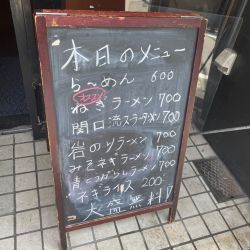 本日のメニュー
らーめん 600
オススメ
ねぎラーメン 700
関口流スラーラーメン 700
岩のりラーメン 700
みそネギラーメン 700
青とうがらしラーメン 700
ネギライス 200
大盛無料!